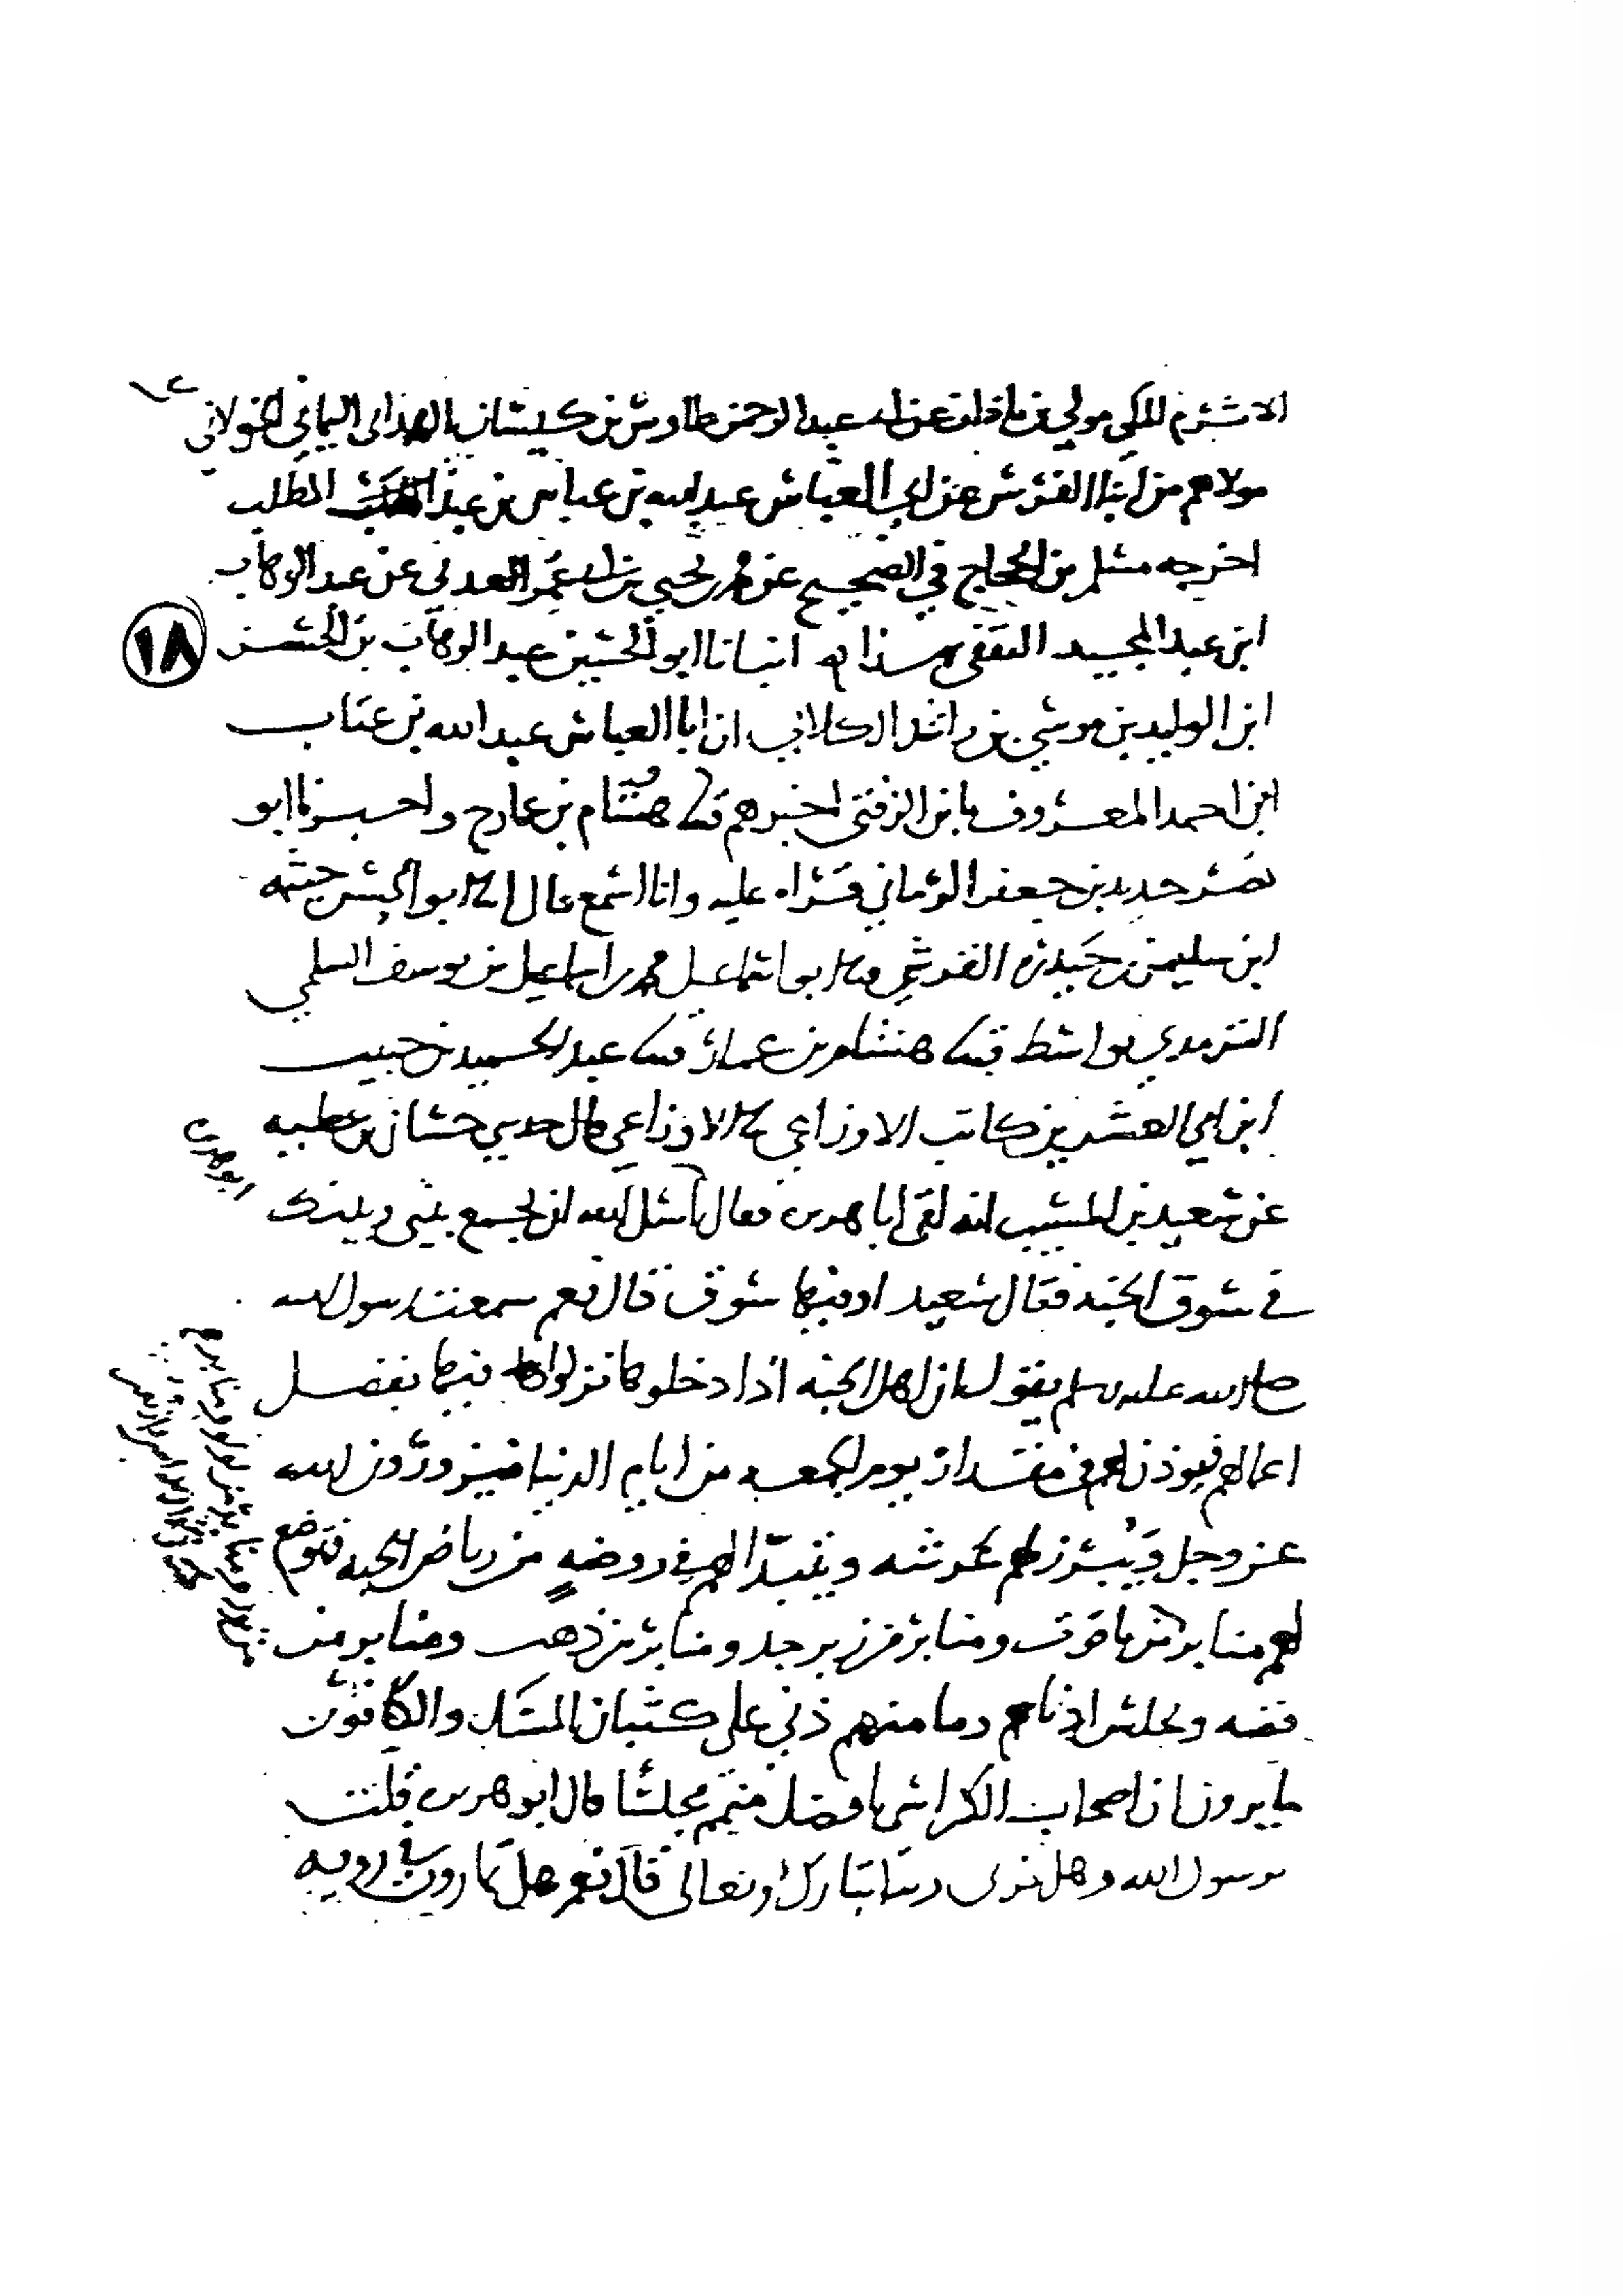 الاشرم المكي مولى بن باذان عن ابي عبد الرحمن طاوس بن كيسان الهمداني اليماني الخولاني
مولاهم من ابنا الفرس عن ابي العباس عبد الله بن عباس بن عبد المطلب
اخرجه مسلم بن الحجاج في الصحيح عن محمد بن يحيى بن ابي عمر العدني عن عبد الوهاب
ابن عبد المجيد الثقفي بهذا انبانا ابو الحسين عبد الوهاب بن الحسن
١٨
ابن الوليد بن موسى بن راشد الكلابي ان ابا العباس عبد الله بن عتاب
ابن احمد المعروف بابن الزفتي اخبرهم هشام بن عمار ح واخبرنا ابو
نصر حديد بن جعفر الرماني قراه عليه وانا اسمع قال ابو الحسن خيثمه
ابن سليمن بن حيدره القرشي ابو اسماعيل محمد بن اسماعيل بن يوسف السلمي
الترمدي بواسط هشام بن عمار عبد الحميد بن حبيب
ابن ابي العشرين كاتب الاوزاعي الاوزاعي قال حدثني حسان بن عطيه
عن سعيد بن المسيب انه لقي ابا هريره فقال اسئل الله ان يجمع بيني وبينك
ابو هريره
في سوق الجنه فقال سعيد اوفيها سوق قال نعم سمعت رسول الله
صلى الله عليه وسلم يقول ان اهل الجنه اذا دخلوها نزلوا فيها بفضل
اعمالهم فيوذن لهم في مقدار يوم الجمعه من ايام الدنيا فيزورون الله
عز وجل ويبرز لهم عرشه ويتبدا لهم في روضه من رياض الجنه فتوضع
لهم منابر من ياقوت ومنابر من زبرجد ومنابر من ذهب ومنابر من
فضه ويجلس ادناهم وما منهم دني على كثبان المسك والكافور
ما يرون ان اصحاب الكراسي بافضل منهم مجلسا قال ابو هريره قلت
يرسول الله وهل نرى ربنا تبارك وتعالى قال نعم هل تمارون في رويه